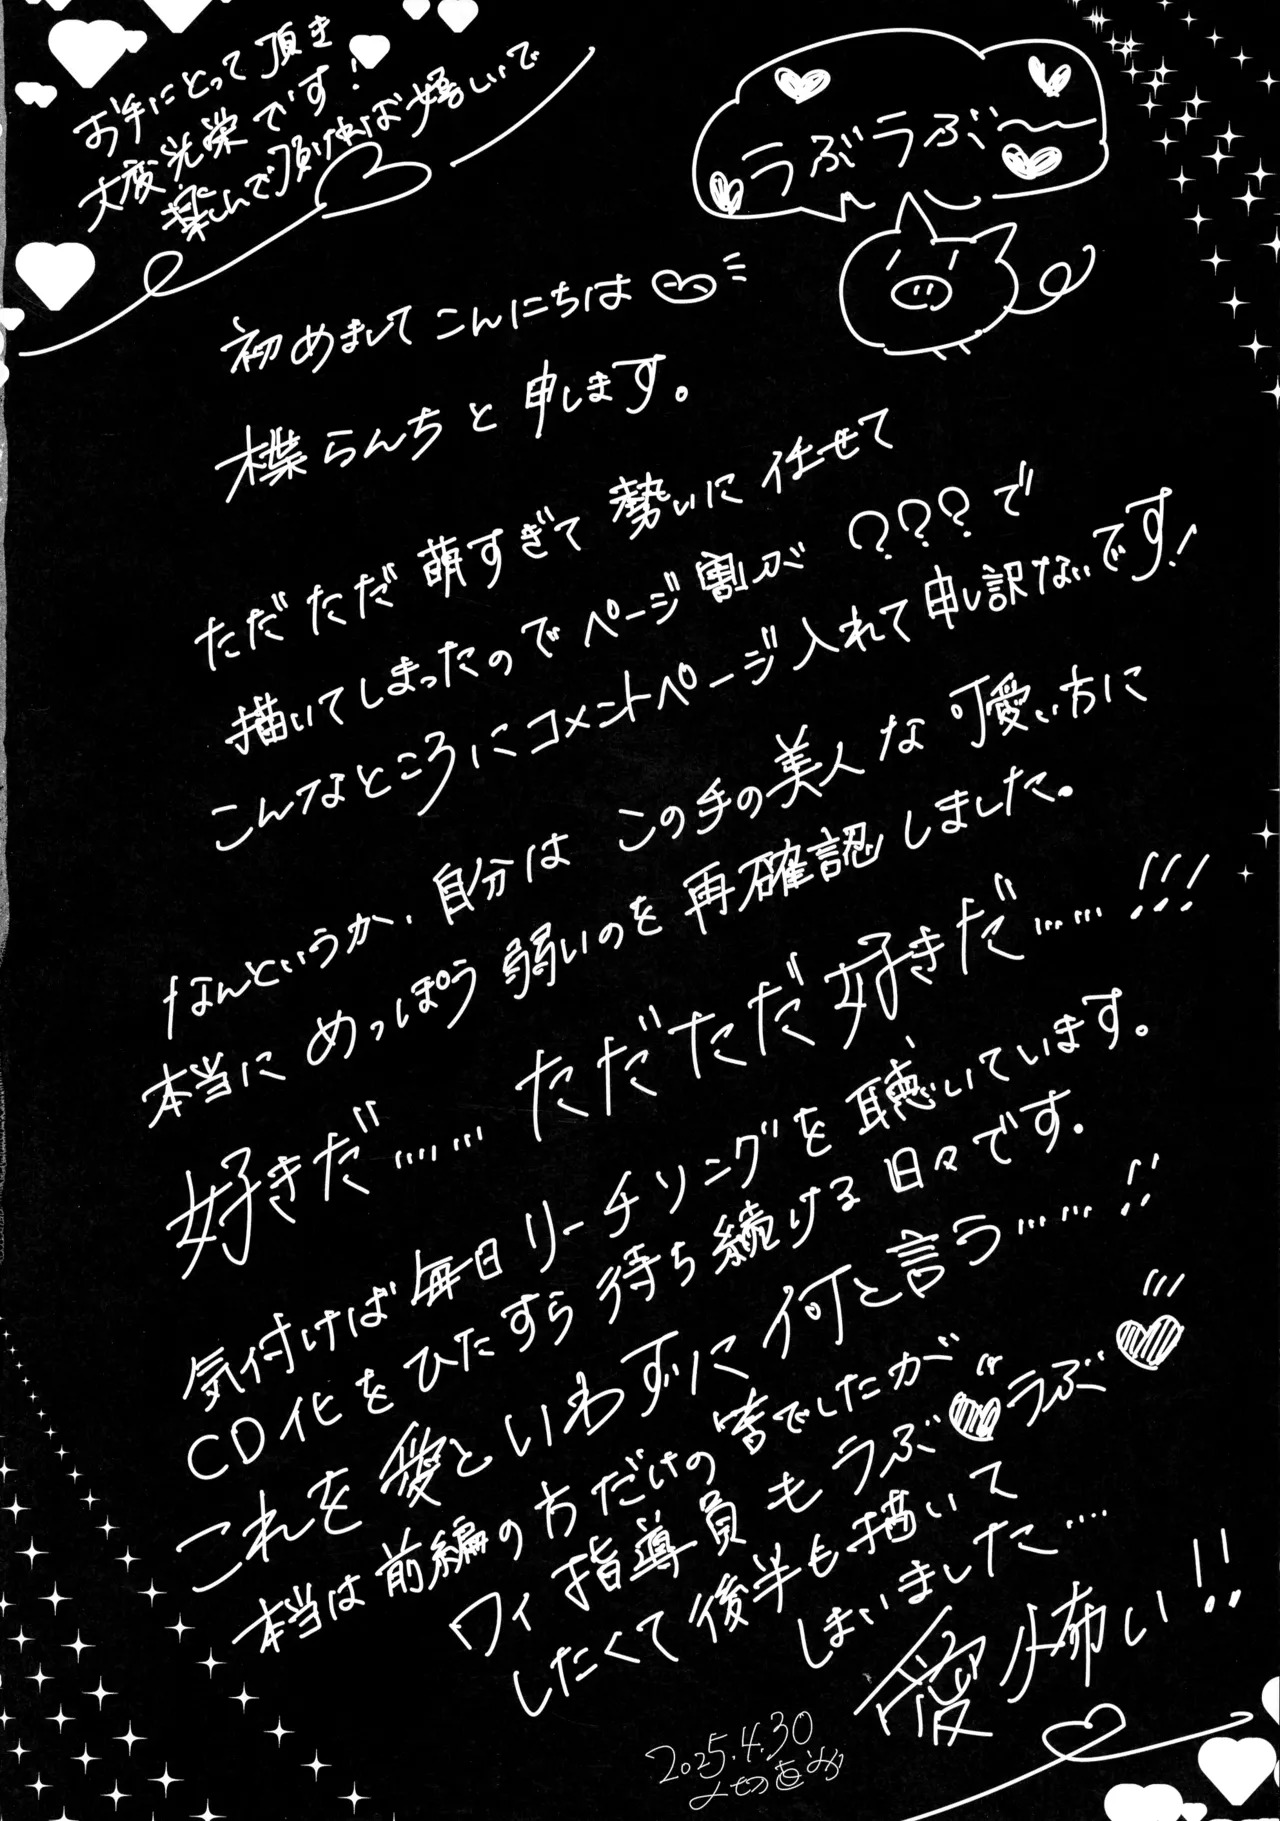 お手にとって頂き
大変光栄です!
楽しんで頂ければ嬉しいで
ラぶラぶ〜
初めましてこんにちは
楪らんちと申します。
ただただ萌すぎて勢いに任せて
描いてしまったのでページ割が???で
こんなところにコメントページ入れて申し訳ないです!
なんというか、自分はこの手の美人な可愛い方に
本当にめっぽう弱いのを再確認しました。
好きだ…… ただただ好きだ……!!!
気付けば毎日リーチソングを聴いています。
CD化をひたすら待ち続ける日々です。
これを愛といわずに何と言う……!!
本当は前編の方だけの筈でしたが
ワイ指導員もラぶラぶ
したくて後半も描いて
しまいました……
愛怖い!!
2025.4.30